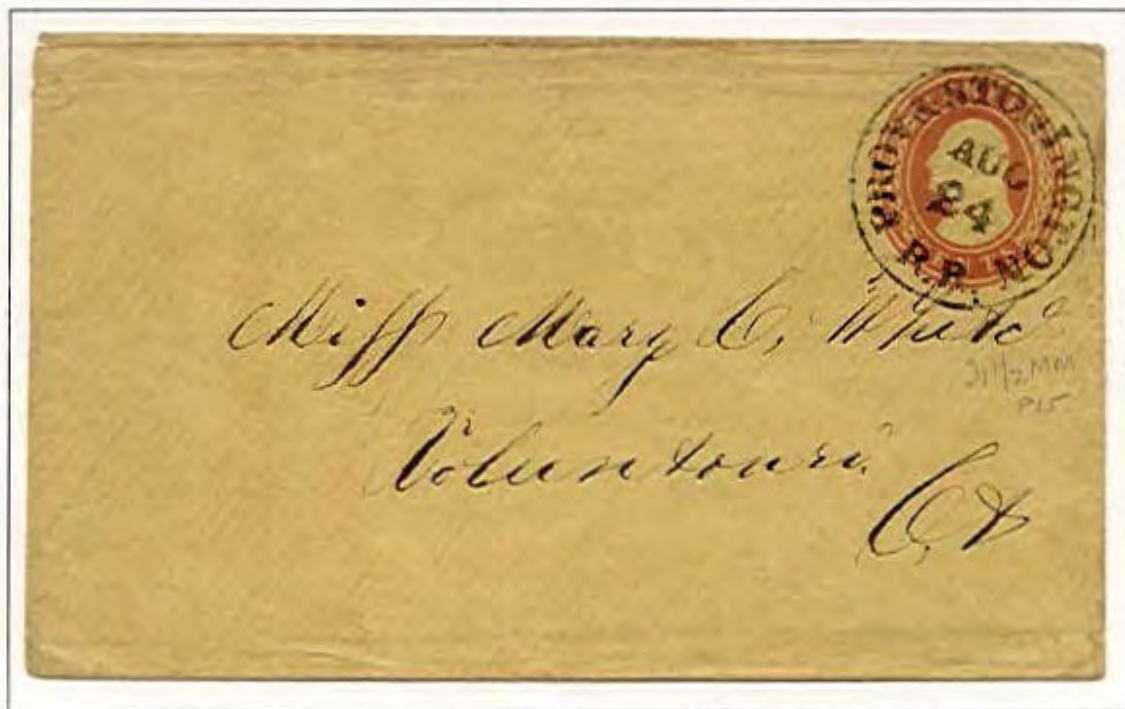 PROV & STONINGTON
AUG
24
R.R.
Miſs Mary C. White
31 1/2 MM
P15
Voluntown
Ct